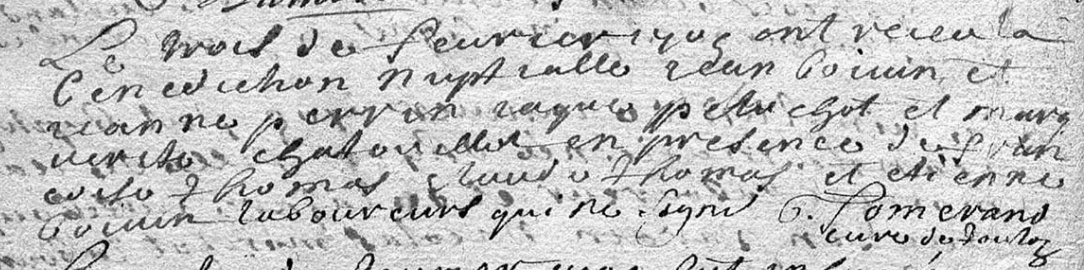 Le trois de feurier 1705 ont receu la
benediction nuptialle jean boiuin et
jeanne perrin jaque petit chot et marg
uerite chatouillot en presence de fran
coise thomas claude thomas et etienne
boiuin laboureurs qui ne signe C. Pomerand
cure de